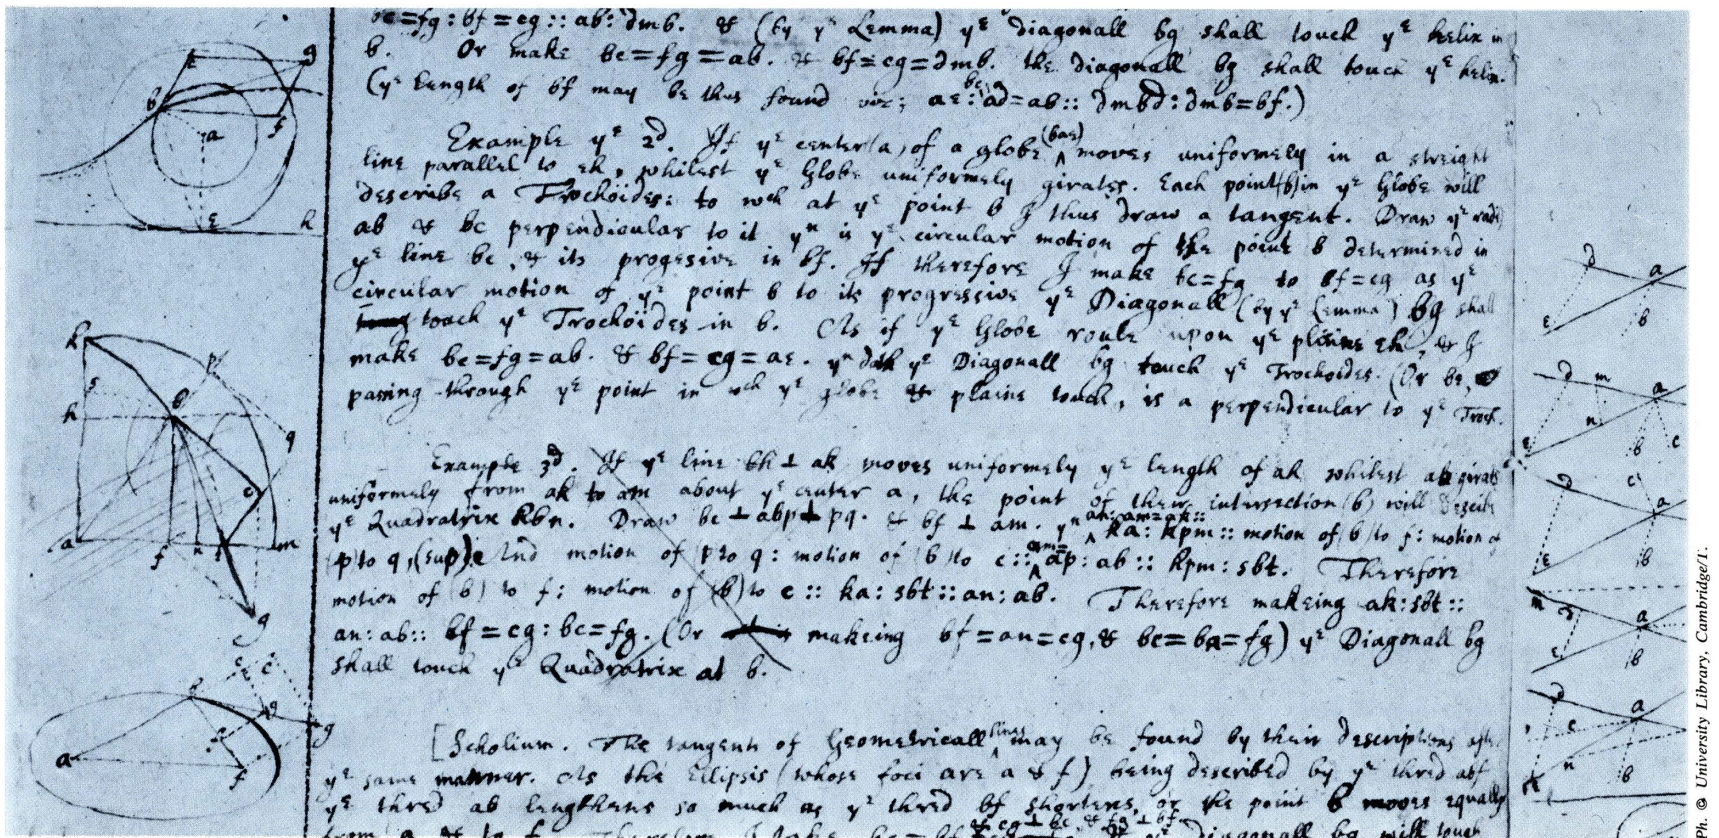 bc=fg : bf=cg :: ab : dmb. & (by yᵉ Lemma) yᵉ diagonall bg shall touch yᵉ helix in
b. Or make bc=fg=ab. & bf=cg=dmb. the diagonall bg shall touch yᵉ helix.
(yᵉ length of bf may be thus found viz; ae : ad=ab :: dmbd : dmb=bf.)
Example yᵉ 2d. If yᵉ center (a) of a globe (bae) moves uniformely in a streight
line parallel to eh, whilest yᵉ Globe uniformely girates. Each point (b) in yᵉ Globe will
describe a Trochoides: to wch at yᵉ point b I thus draw a tangent. Draw yᵉ radi
ab & bc perpendicular to it yⁿ is yᵉ circular motion of the point b determined in
yᵉ line bc, & its progresive in bf. If therefore I make bc=fg to bf=cg as yᵉ
circular motion of yᵉ point b to its progressive yᵉ Diagonall (by yᵉ Lemma) bg shall
touch yᵉ Trochoides in b. As if yᵉ Globe roule upon yᵉ plaine eh, & I
make bc=fg=ab. & bf=cg=ae. yⁿ doth yᵉ Diagonall bg touch yᵉ Trochoides. (Or be,
passing through yᵉ point in wch yᵉ globe & plaine touch, is a perpendicular to yᵉ Troch.
Example 3d. If yᵉ line bh ⊥ ak moves uniformely yᵉ length of ak whilest ab girats
uniformely from ak to am about yᵉ center a, the point of their intersection (b) will describ
yᵉ Quadratrix kbn. Draw bc ⊥ abp ⊥ pq. & bf ⊥ am. yⁿ an:am=ak:: ka : kpm :: motion of (b) to f : motion of
(p to q, And motion of (p to q : motion of (b) to c :: am= ap : ab :: kpm : sbt. Therefore
motion of (b) to f : motion of (b) to c :: ka : sbt :: an : ab. Therefore makeing ak : sbt ::
an : ab :: bf=cg : bc=fg. (Or makeing bf=an=cg, & bc=ba=fg) yᵉ Diagonall bg
shall touch yᵉ Quadratrix at b.
[Scholium. The tangents of Geometricall lines may be found by their descriptions after
yᵉ same manner. As the Ellipsis (whose foci are a & f) being described by yᵉ thred abf
yᵉ thred ab lengthens so much as yᵉ thred bf shortens, or the point b moves equally
from a & to f. Therefore I make diagonall bg will touch
Ph. © University Library, Cambridge/T.